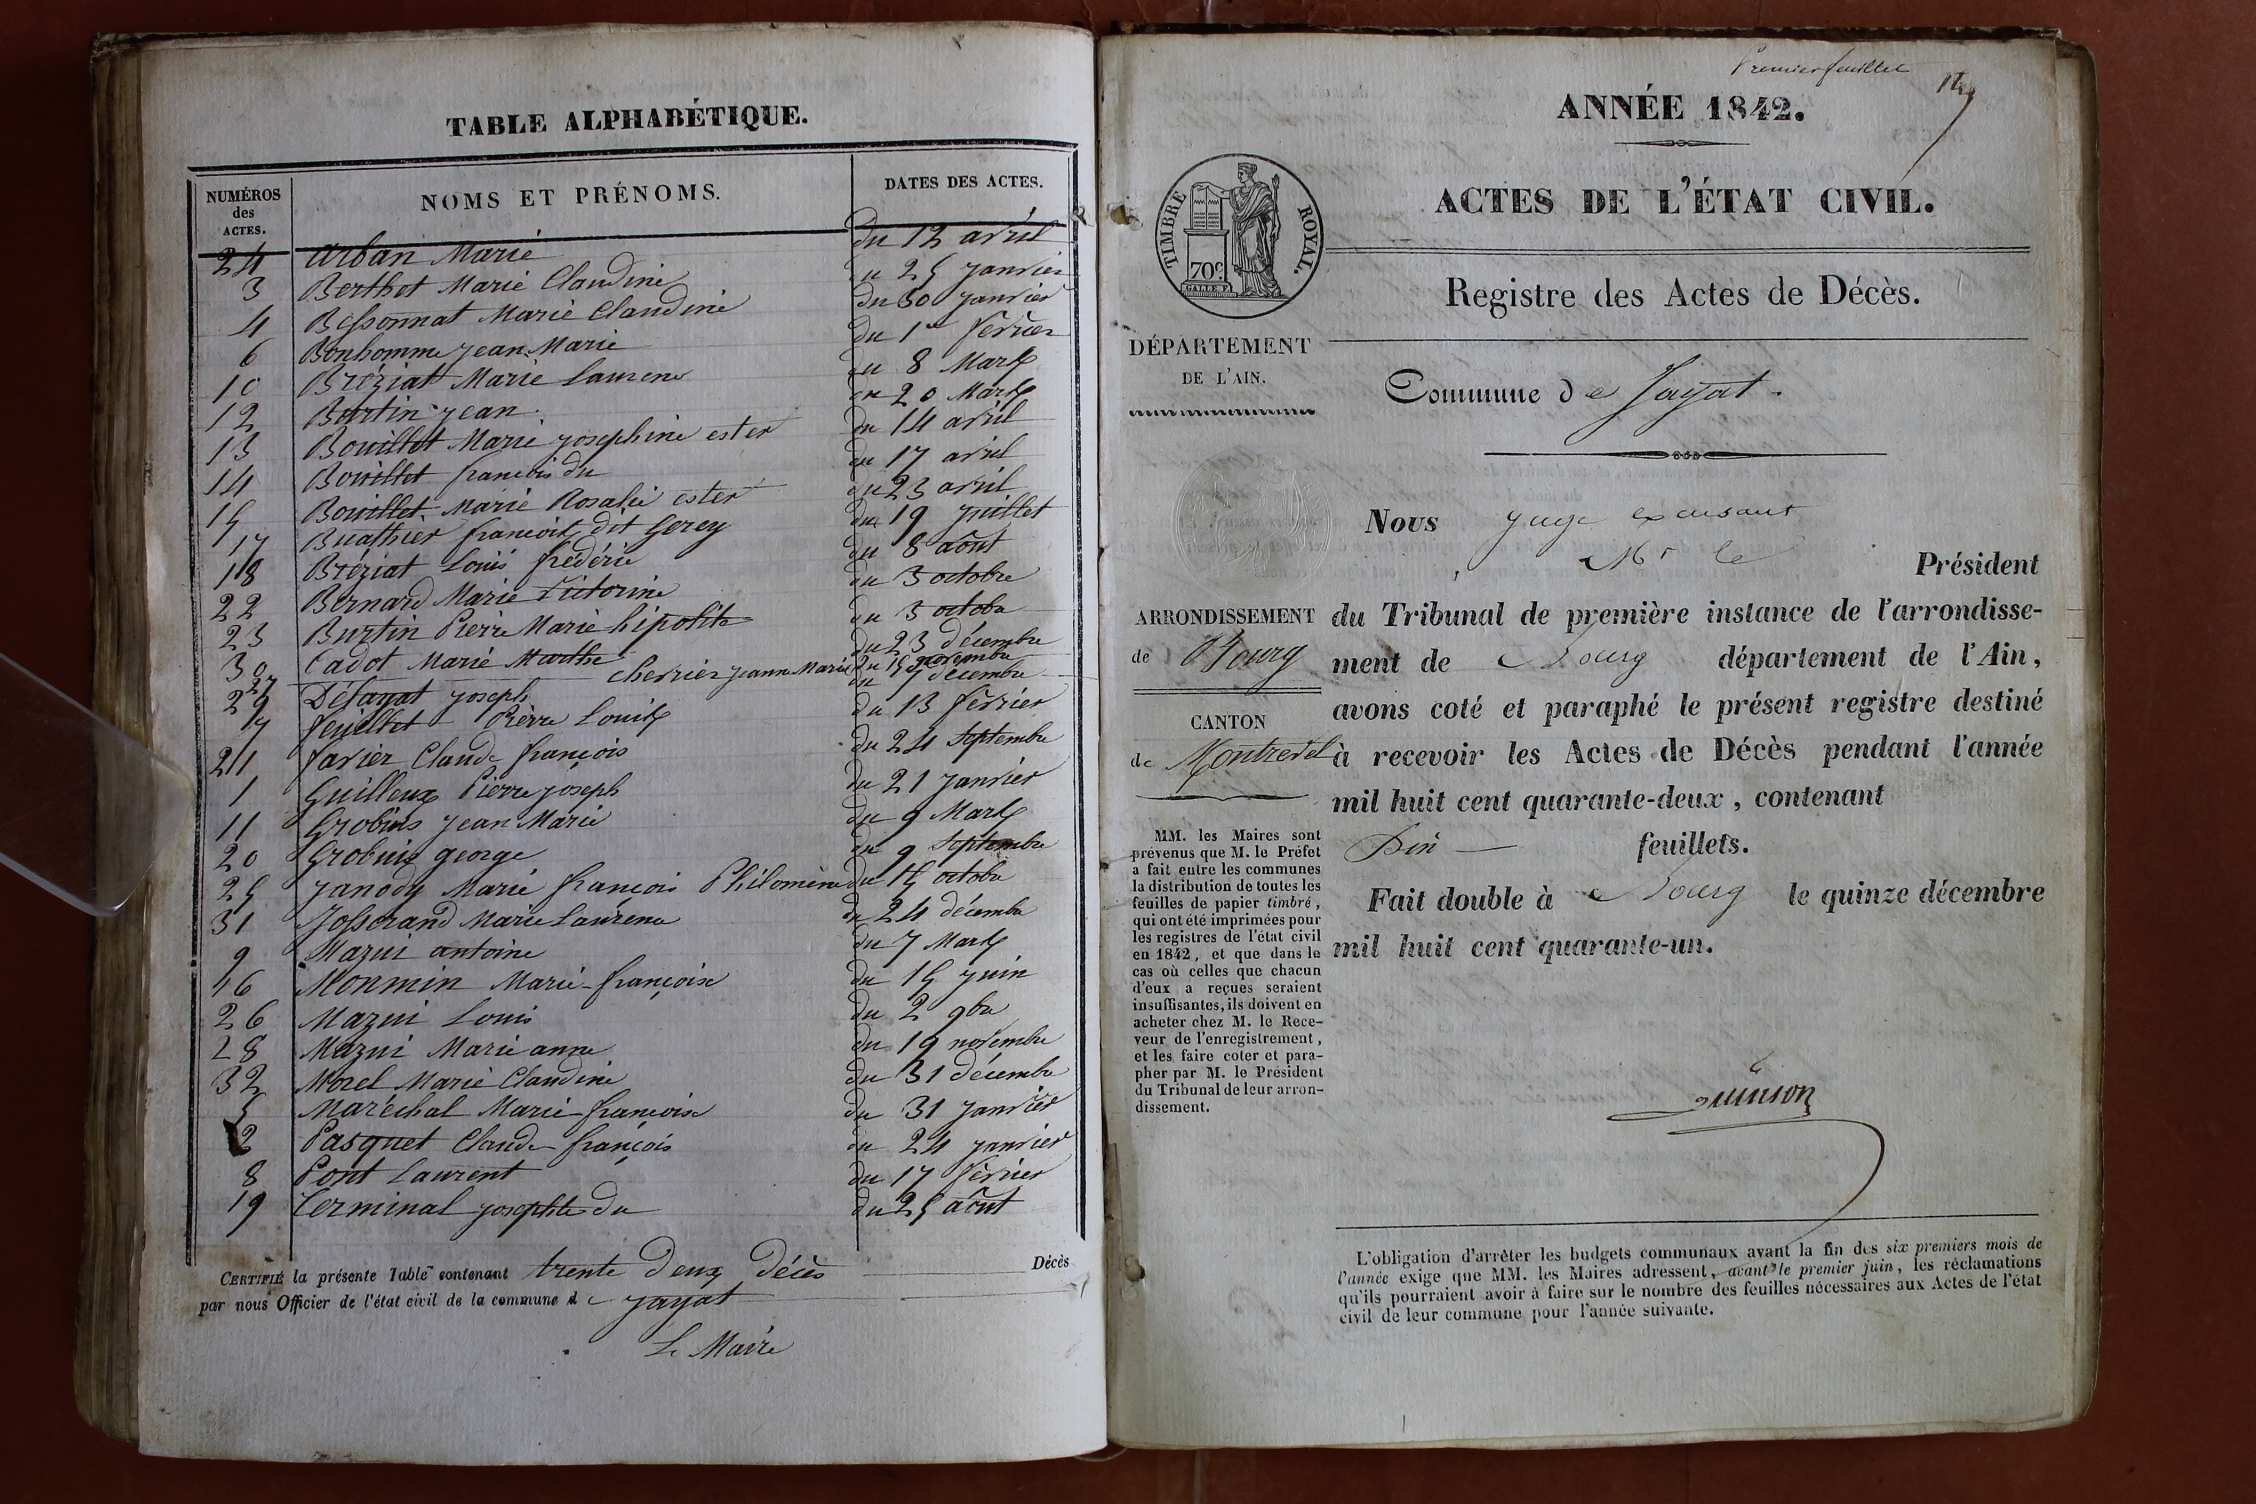 TABLE ALPHABÉTIQUE.
NUMÉROS des ACTES. NOMS ET PRÉNOMS. DATES DES ACTES.
24 Urban Marie du 12 avril
3 Berthet Marie Claudine du 25 janvier
4 Bessonnat Marie Claudine du 30 janvier
6 Bonhomme jean Marie du 1er février
10 Bréziat Marie Laurence du 8 Mars
12 Burtin jean du 20 Mars
13 Bouillet Marie josephine ester du 14 avril
14 Bouillet françois du du 17 avril
15 Bouillet Marie Rosalie ester du 23 avril
17 Buathier francois dit Gorey du 19 juillet
18 Bréziat Louis frédéric du 8 août
22 Bernard Marie Victorine du 3 octobre
23 Burtin Pierre Marie hipolite du 3 octobre
30 Cadot Marie Marthe du 23 décembre
27 cherrier jeanne Marie du 15 novembre
29 Défayat joseph du décembre
7 feuillet Pierre Louis du 13 février
21 favier Claude françois du 24 Septembre
1 Guilleux Pierre joseph du 21 janvier
11 Grobuis jean Marie du 9 Mars
20 Grobuis george du 9 Septembre
25 janody Marie françois Philomène du 15 octobre
31 Josserand Marie Laurence du 24 décembre
9 Mazui antoine du 7 Mars
16 Monmin Marie françoise du 15 juin
26 Mazui Louis du 2 9bre
28 Mazui Marie anne du 19 novembre
32 Morel Marie Claudine du 31 décembre
5 Maréchal Marie françoise du 31 janvier
2 Pasquet Claude françois du 24 janvier
8 Pont Laurent du 17 février
19 Terminal josephte du du 25 août
CERTIFIÉ la présente Table contenant trente deux Décès Décès
par nous Officier de l'état civil de la commune de jayat
Le Maire
Premier feuillet
ANNÉE 1842.
ACTES DE L'ÉTAT CIVIL.
TIMBRE ROYAL.
70c.
Registre des Actes de Décès.
DÉPARTEMENT
DE L'AIN.
Commune de Jayat.
Nous juge
Mr le Président
ARRONDISSEMENT
de Bourg
CANTON
de Montrevel
du Tribunal de première instance de l'arrondisse-
ment de Bourg département de l'Ain,
avons coté et paraphé le présent registre destiné
à recevoir les Actes de Décès pendant l'année
mil huit cent quarante-deux, contenant
feuillets.
Fait double à Bourg le quinze décembre
mil huit cent quarante-un.
MM. les Maires sont
prévenus que M. le Préfet
a fait entre les communes
la distribution de toutes les
feuilles de papier timbré,
qui ont été imprimées pour
les registres de l'état civil
en 1842, et que dans le
cas où celles que chacun
d'eux a reçues seraient
insuffisantes, ils doivent en
acheter chez M. le Rece-
veur de l'enregistrement,
et les faire coter et para-
pher par M. le Président
du Tribunal de leur arron-
dissement.
L'obligation d'arrêter les budgets communaux avant la fin des six premiers mois de
l'année exige que MM. les Maires adressent, avant le premier juin, les réclamations
qu'ils pourraient avoir à faire sur le nombre des feuilles nécessaires aux Actes de l'état
civil de leur commune pour l'année suivante.